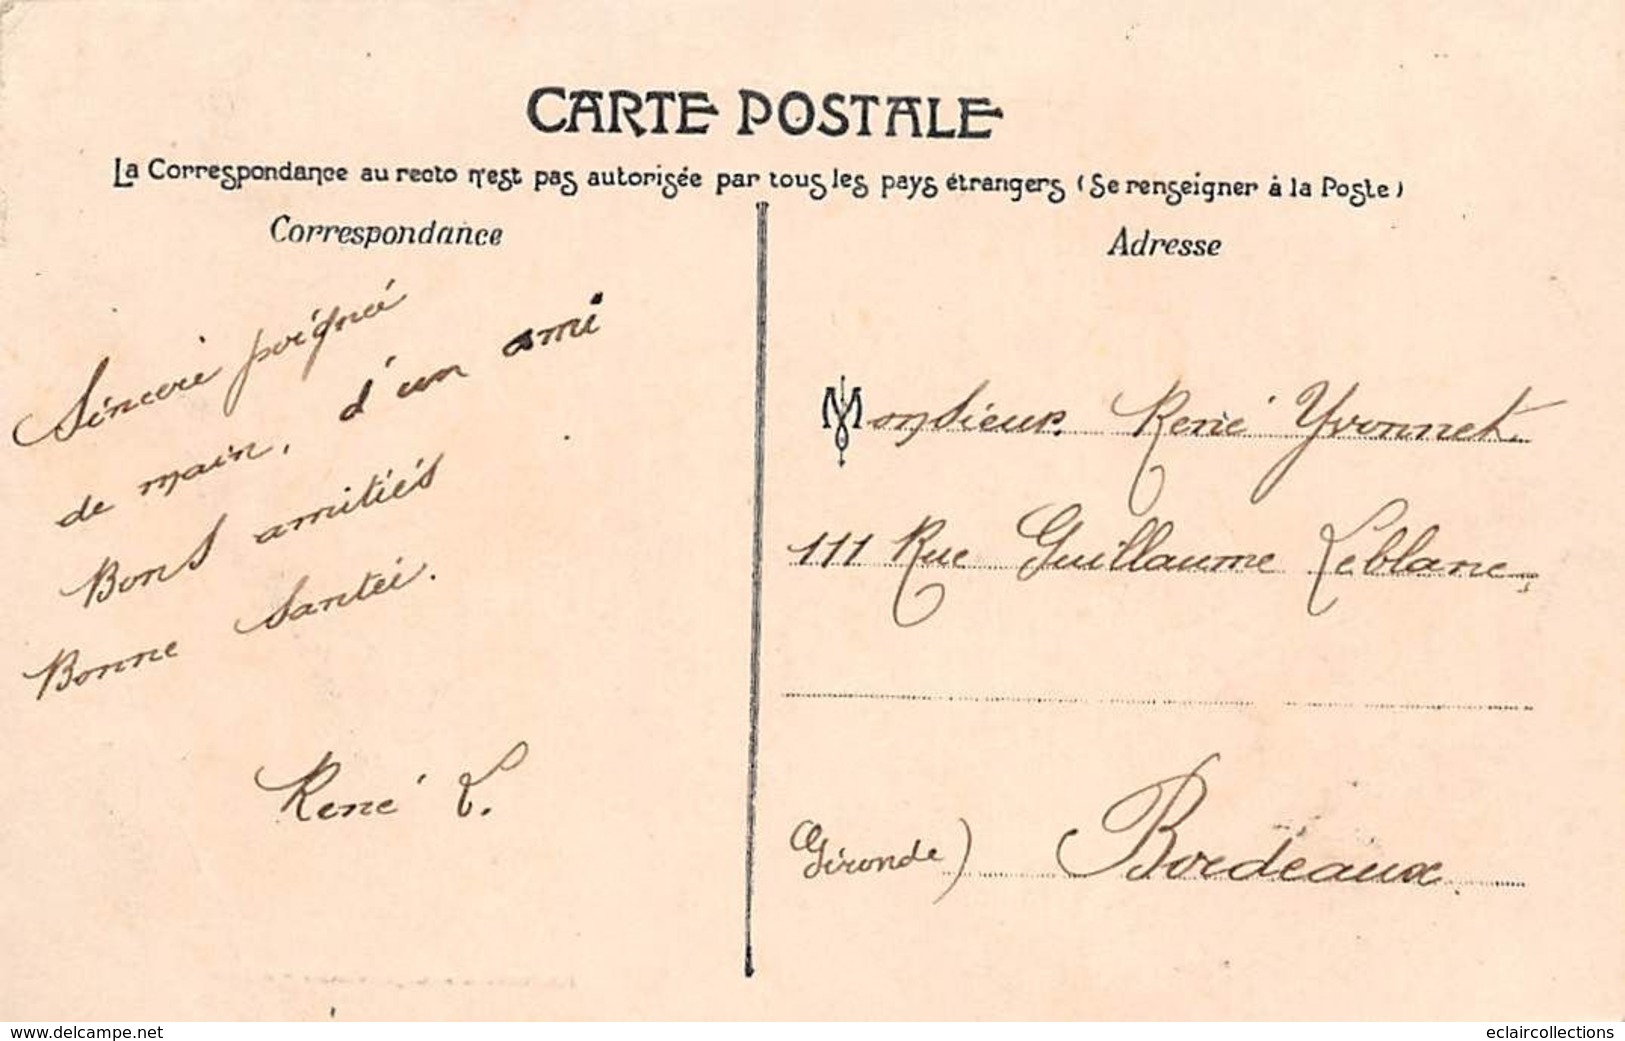 CARTE POSTALE
La Correspondance au recto n'est pas autorisée par tous les pays étrangers (Se renseigner à la Poste)
Correspondance
Sincère poignée
de main, d'un ami
Bons amitiés
Bonne Santée.
René L.
Adresse
Monsieur. René Yvonnet
111 Rue Guillaume Leblanc,
Gironde) Bordeaux.
www.delcampe.net
eclaircollections